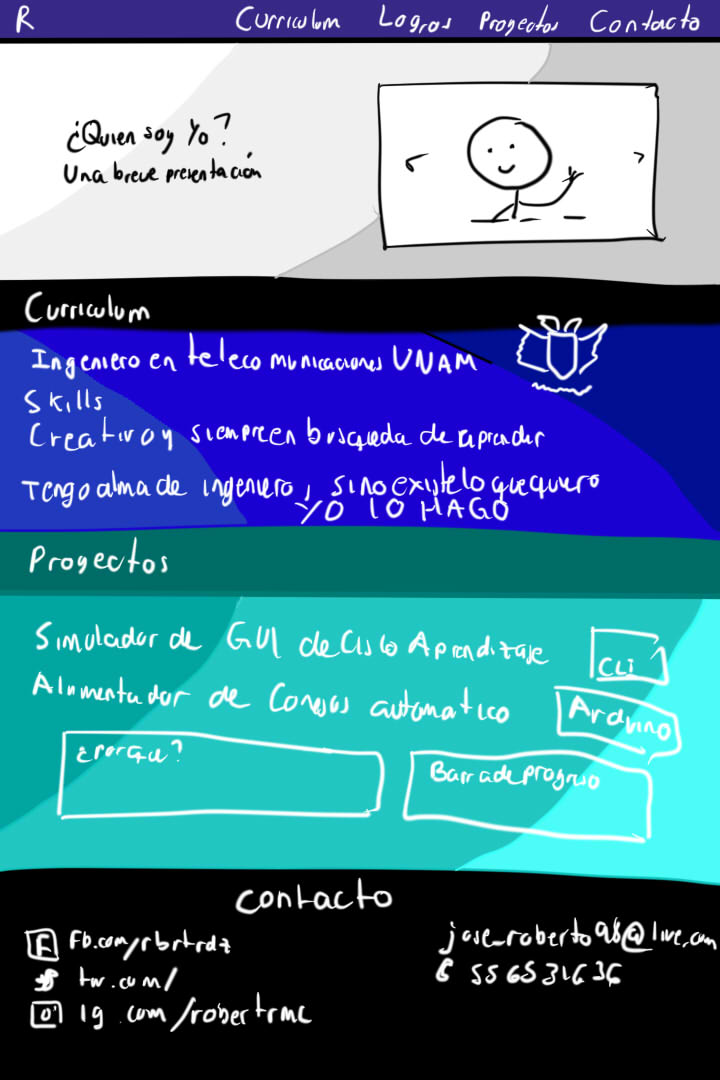 R Curriculum Logros Proyectos Contacto
¿Quien soy Yo?
Una breve presentación
Curriculum
Ingeniero en telecomunicaciones UNAM
Skills
Creativo y siempre en busqueda de aprender
Tengo alma de ingeniero, si no existe lo que quiero
YO LO HAGO
Proyectos
Simulador de GUI de Cisco Aprendizaje
CLI
Alimentador de Conejos automatico
Arduino
¿Porque?
Barra de progreso
Contacto
F Fb.com/rbrtrdz
jose_roberto98@live.com
tw.com/
55 6531636
Ig.com/robertrmc